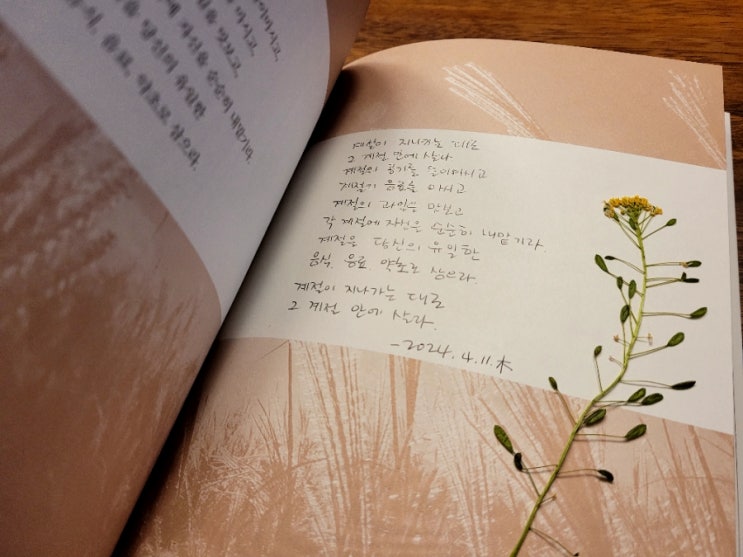 들이마시고,
마시고,
맛보고,
각 계절에 자신을 순순히 내맡기라.
계절을 당신의 유일한
음식, 음료, 약초로 삼으라.
계절이 지나가는 대로
그 계절 안에 살라
계절의 공기를 들이마시고
계절의 음료를 마시고
계절의 과일을 맛보고
각 계절에 자신을 순순히 내맡기라.
계절을 당신의 유일한
음식, 음료, 약초로 삼으라.
계절이 지나가는 대로
그 계절 안에 살라.
-2024.4.11.木